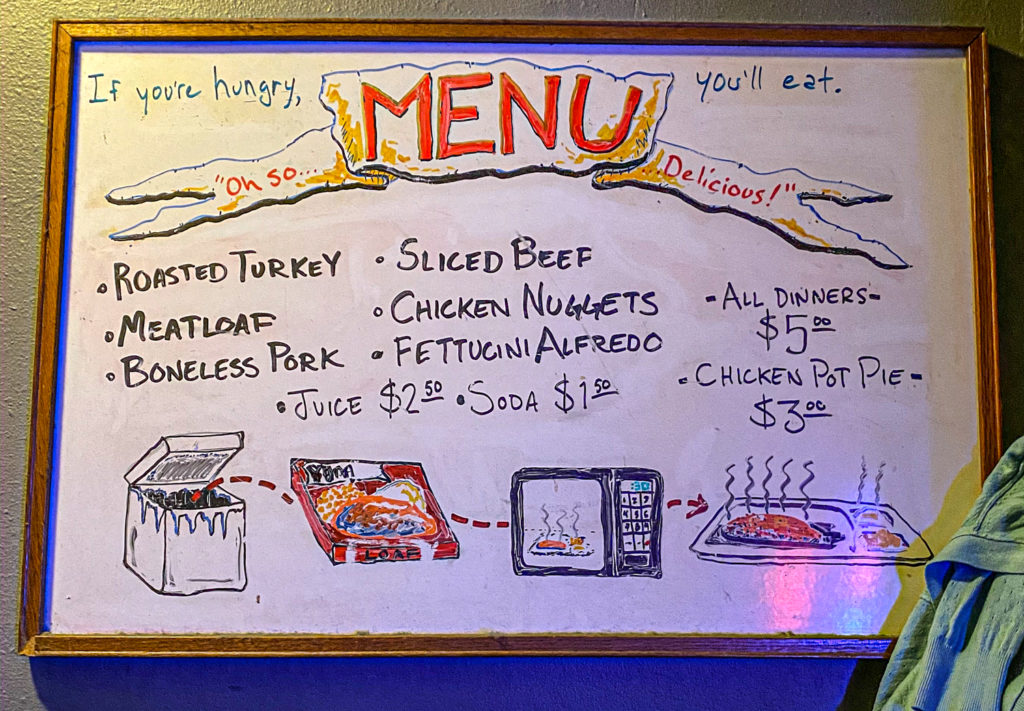 If you're hungry, MENU you'll eat.
"Oh so... ...Delicious!"
• ROASTED TURKEY
• MEATLOAF
• BONELESS PORK
• SLICED BEEF
• CHICKEN NUGGETS
• FETTUCINI ALFREDO
• JUICE $2.50 • SODA $1.50
- ALL DINNERS -
$5.00
- CHICKEN POT PIE -
$3.00
LOAF